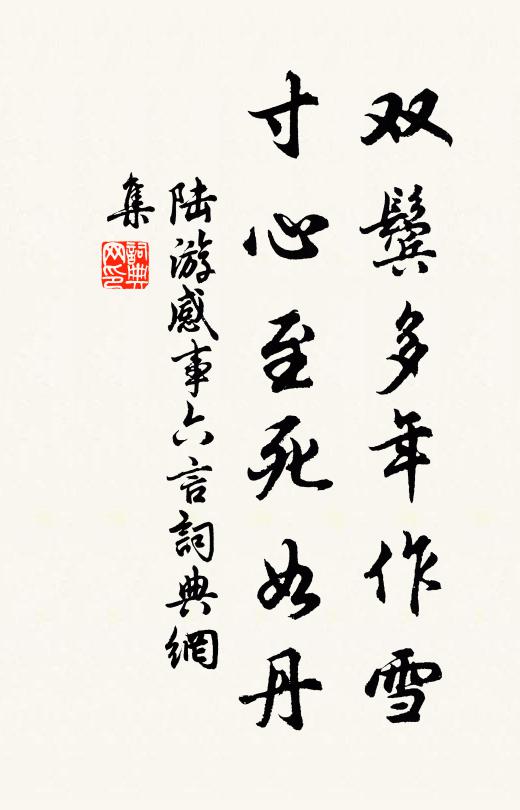 双鬓多年作雪
寸心至死如丹
陆游感事六言詞典網
集
詞典網印